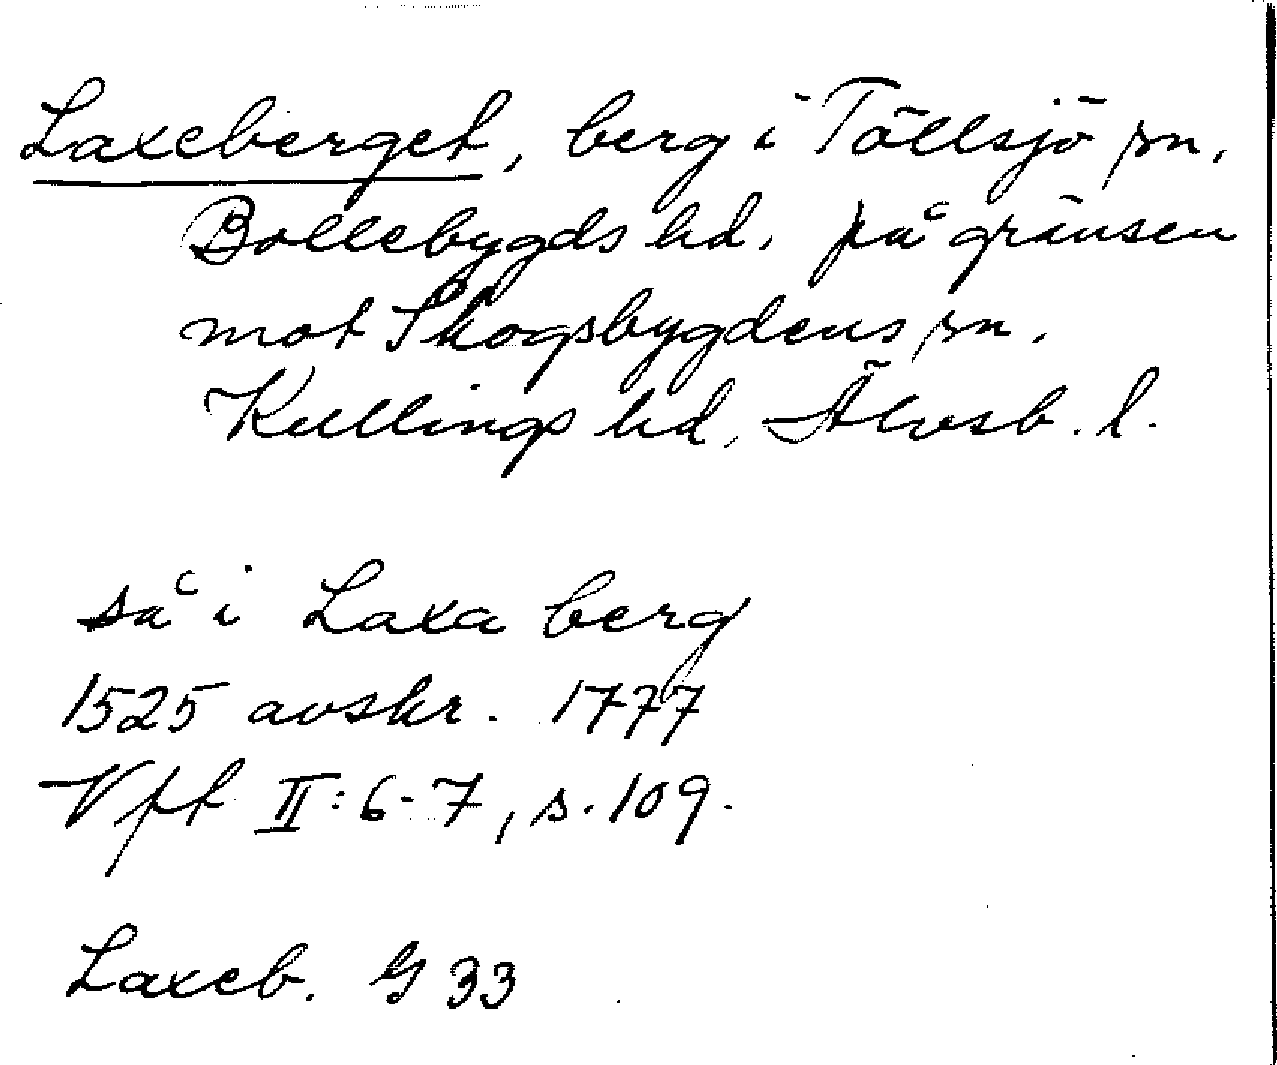 Laxeberget, berg i Töllsjö sn,
Bollebygds hd, på gränsen
mot Skogsbygdens sn,
Kullings hd, Älvsb. l.
så i Laxa berg
1525 avskr. 1777
Vfft II:6-7, s. 109.
Laxeb. G 33